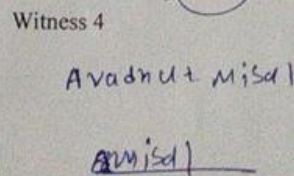 Witness 4
Avadhut Misal